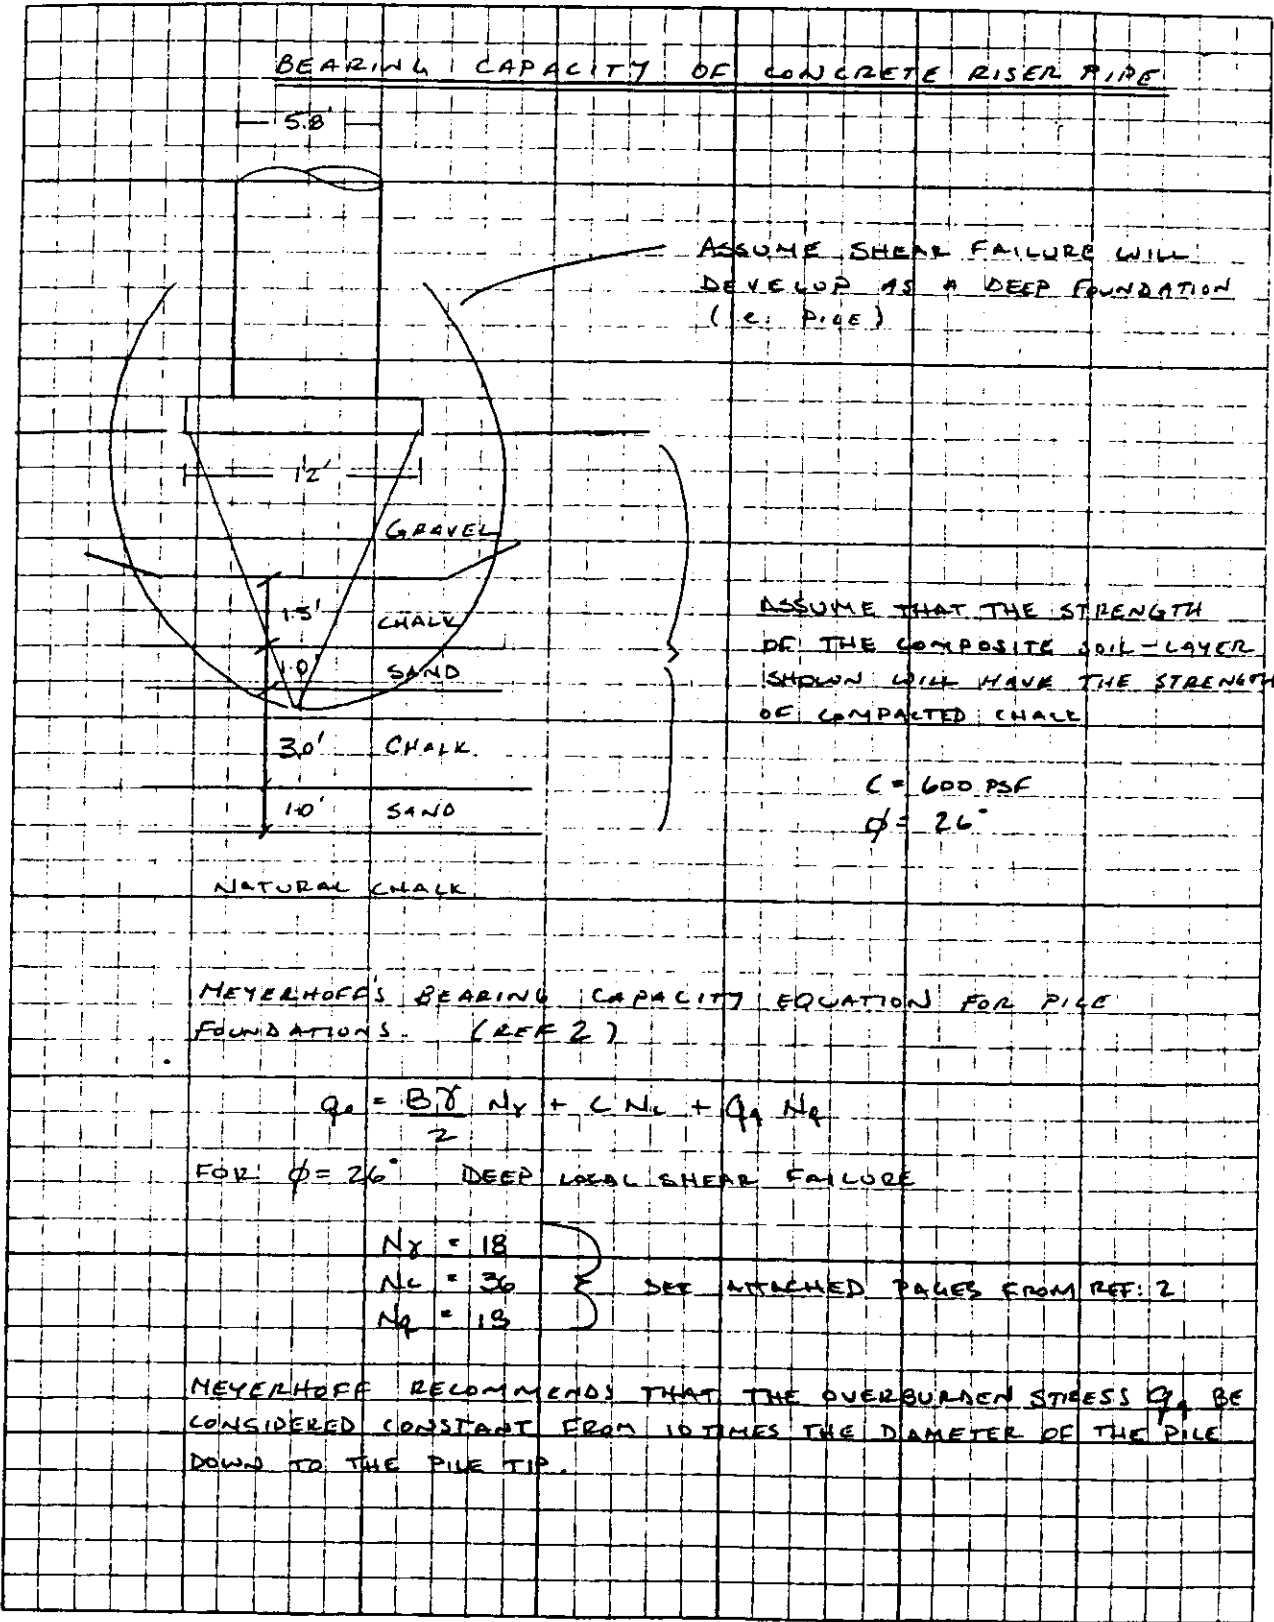 BEARING CAPACITY OF CONCRETE RISER PIPE
5.8'
ASSUME SHEAR FAILURE WILL
DEVELOP AS A DEEP FOUNDATION
(i.e. PILE)
12'
GRAVEL
1.5' CHALK
1.0' SAND
3.0' CHALK
1.0' SAND
NATURAL CHALK
ASSUME THAT THE STRENGTH
OF THE COMPOSITE SOIL-LAYER
SHOWN WILL HAVE THE STRENGTH
OF COMPACTED CHALK
C = 600 PSF
φ = 26°
MEYERHOFF'S BEARING CAPACITY EQUATION FOR PILE
FOUNDATIONS. (REF 2)
q₀ = Bγ/2 Nγ + C Nc + qq Nq
FOR φ = 26° DEEP LOCAL SHEAR FAILURE
Nγ = 18
Nc = 36
Nq = 18
SEE ATTACHED PAGES FROM REF: 2
MEYERHOFF RECOMMENDS THAT THE OVERBURDEN STRESS qq BE
CONSIDERED CONSTANT FROM 10 TIMES THE DIAMETER OF THE PILE
DOWN TO THE PILE TIP.